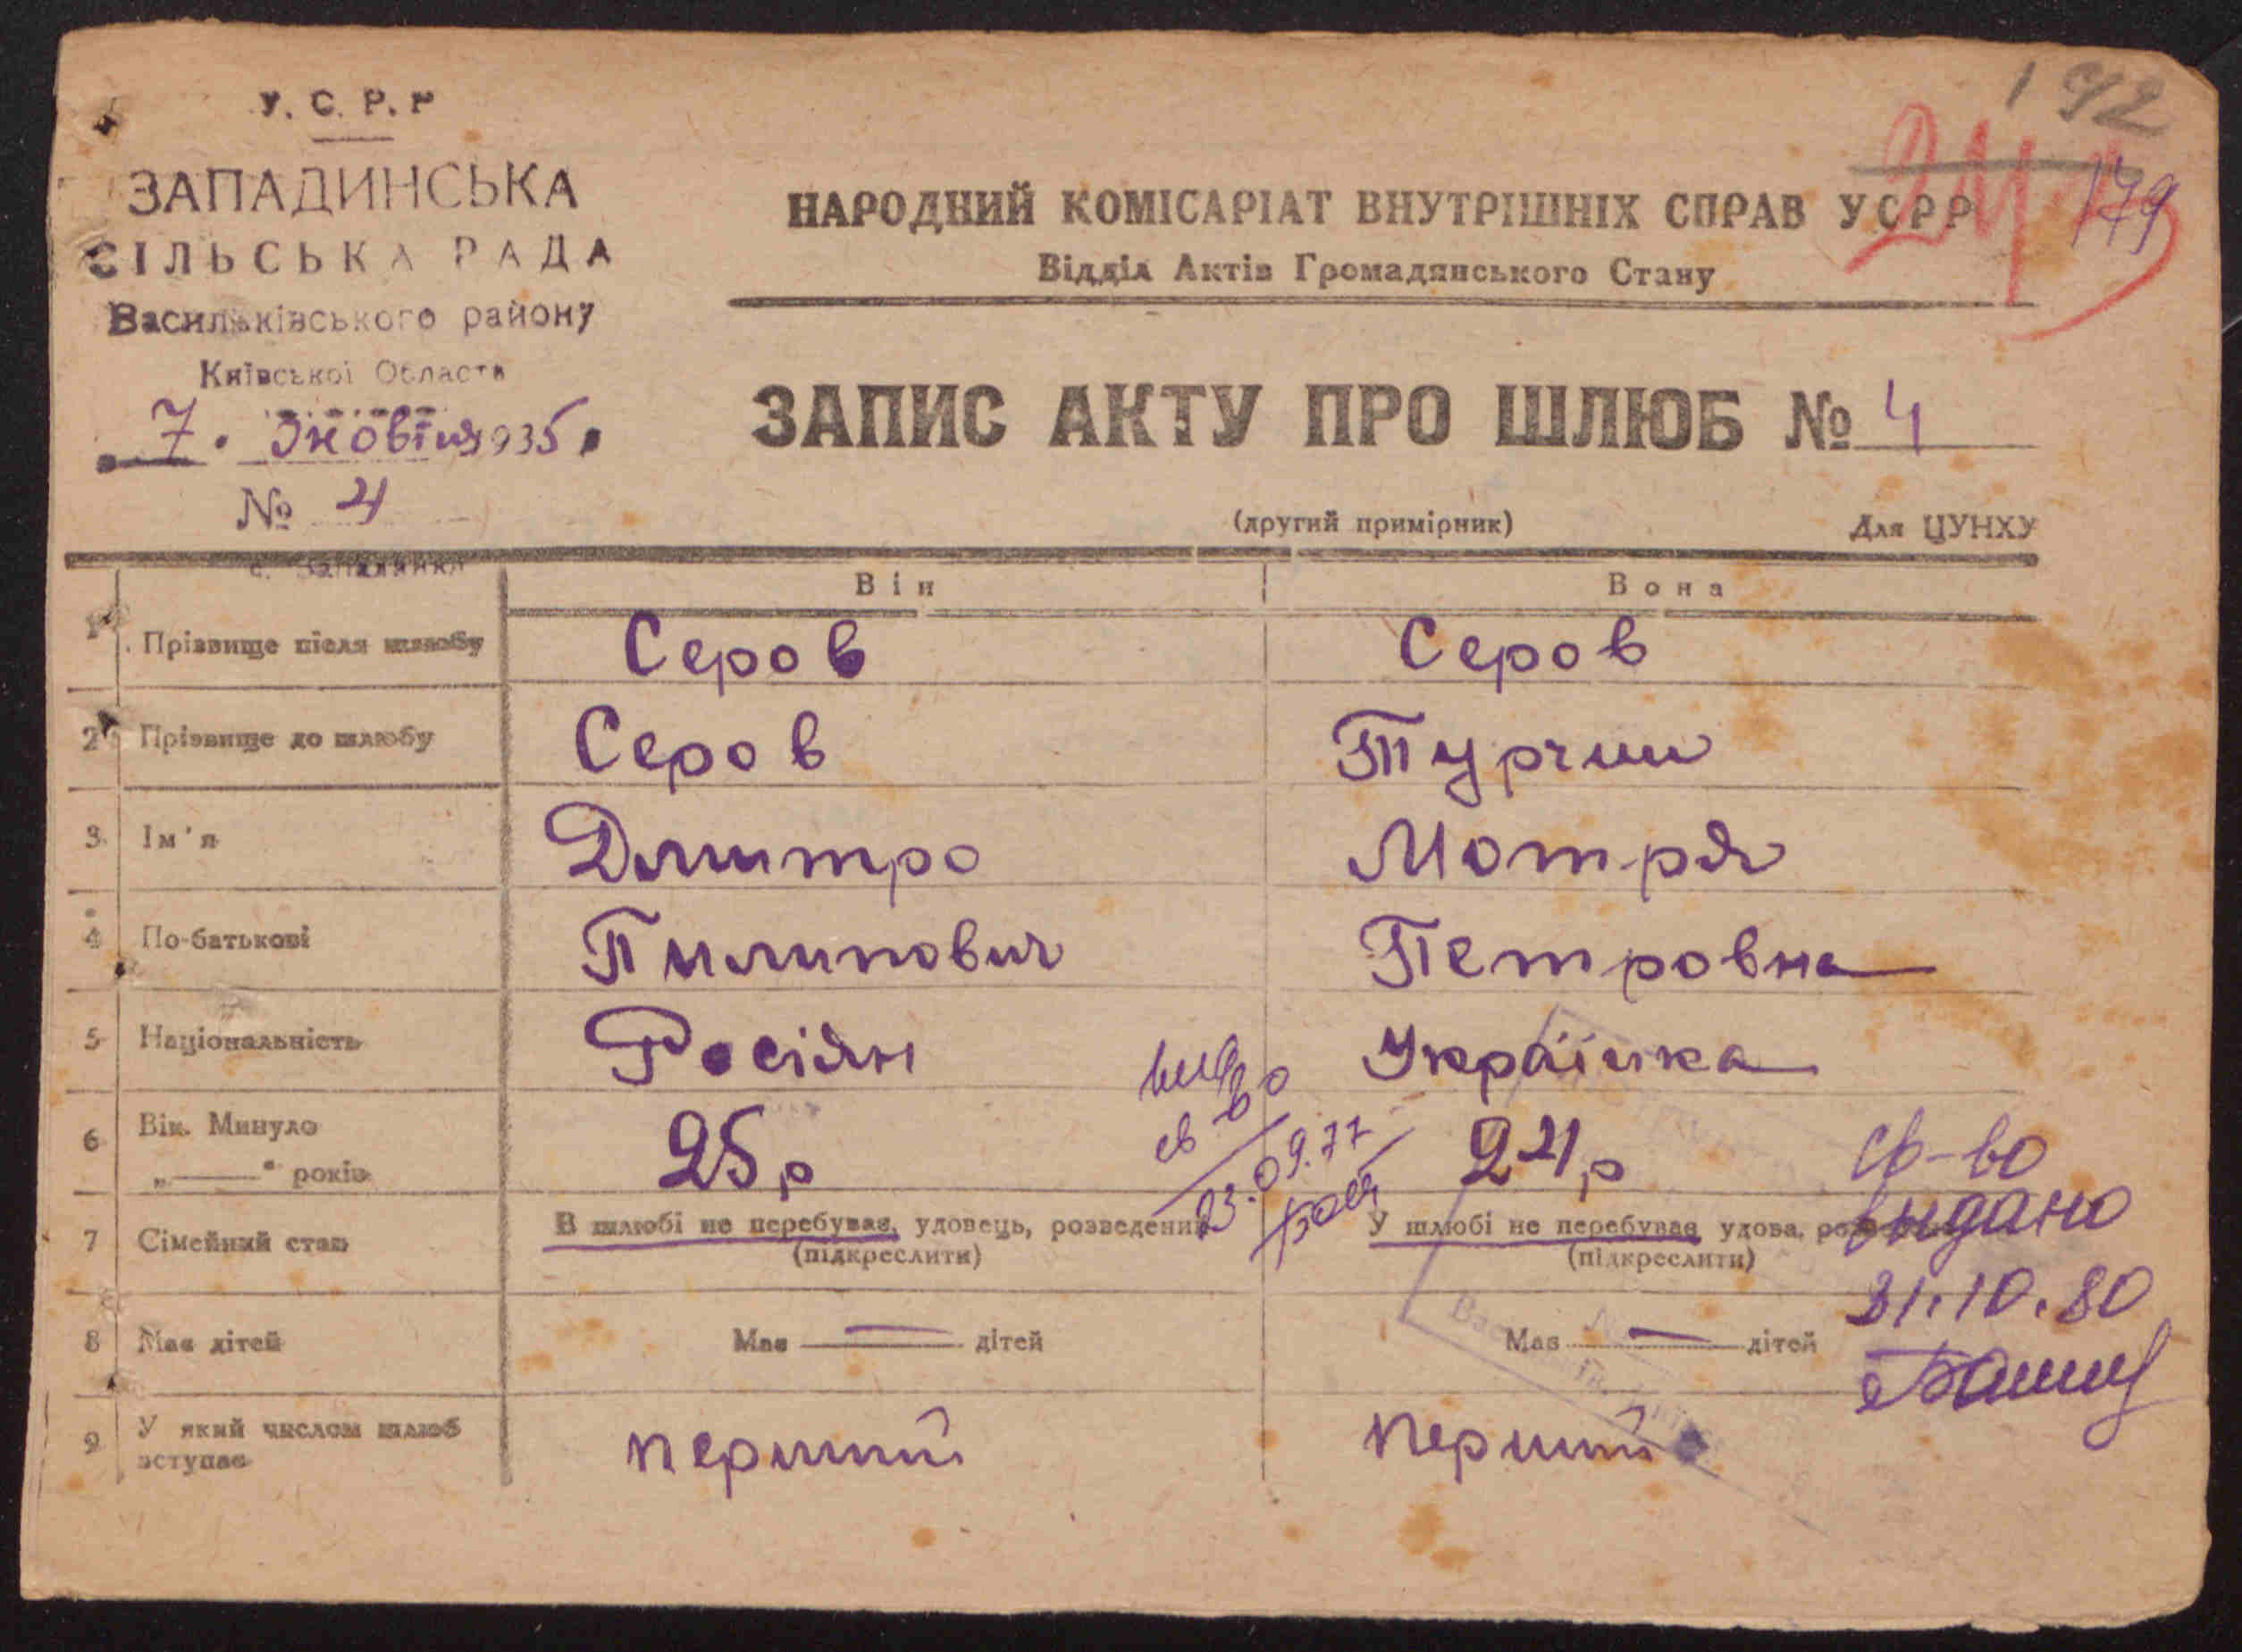 У. С. Р. Р
ЗАПАДИНСЬКА
СІЛЬСЬКА РАДА
Васильківського району
Київської Області
7. Жовтня 935.
№ 4
с. Западинка
192
179
НАРОДНИЙ КОМІСАРІАТ ВНУТРІШНІХ СПРАВ УСРР
Відділ Актів Громадянського Стану
ЗАПИС АКТУ ПРО ШЛЮБ № 4
(другий примірник) Для ЦУНХУ
Він Вона
1 Прізвище після шлюбу Серов Серов
2 Прізвище до шлюбу Серов Турчин
3 Ім'я Дмитро Мотря
4 По-батькові Пилипович Петровна
5 Національність Росіян Українка
6 Вік. Минуло
„——" років 25 р 24 р
7 Сімейний стан В шлюбі не перебуває, удовець, розведений У шлюбі не перебуває удова,
(підкреслити) (підкреслити)
8 Має дітей Має — дітей Має — дітей
9 У який числом шлюб
вступає перший перший
св-во
23.09.77
св-во
видано
31.10.80